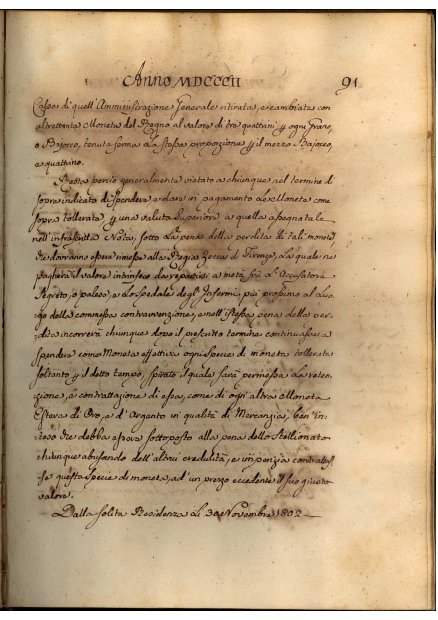 Anno MDCCCII 91
Cassa di quell'Amministrazione Generale ritirata, e cambiata con
altrettanta Moneta del Regno al valore di tre quattrini ogni Grano,
o Bajocco, tenuta ferma La stessa proporzione il mezzo Bajocco,
a quattrino.
Resta perciò generalmente vietato a chiunque nel termine di
sopra indicato di spendere, o dare in pagamento Le Monete come
sopra tollerate, una valuta Superiore a quella assegnatale
nell'infrascritta Nota, sotto La pena della perdita di tali monete
che dovranno essere rimesse alla Regia Zecca di Firenze, La quale ne
pagherà il valore intrinseco da repartirsi a metà frà L'Accusatore
Segreto, o palese, e Lo spedale degl'Infermi più prossimo al Luo-
go della commessa contravvenzione, e nell'istessa pena della per-
dita incorrerà chiunque dopo il prescritto termine continuasse a
spendere come Moneta effettiva ogni specie di moneta tollerata
soltanto il detto tempo, spirato il quale sarà permessa La reten-
zione, e contrattazione di essa, come di ogn'altra Moneta
Estera di Oro, e d'Argento in qualità di Mercanzia, ben'in-
teso che debba essere sottoposto alla pena dello Stellionato
chiunque abusando dell'altrui credulità, e imperizia contrattas-
se questa specie di moneta, ad un prezzo eccedente il suo giusto
valore.
Dalla solita Residenza Li 30 Novembre 1802